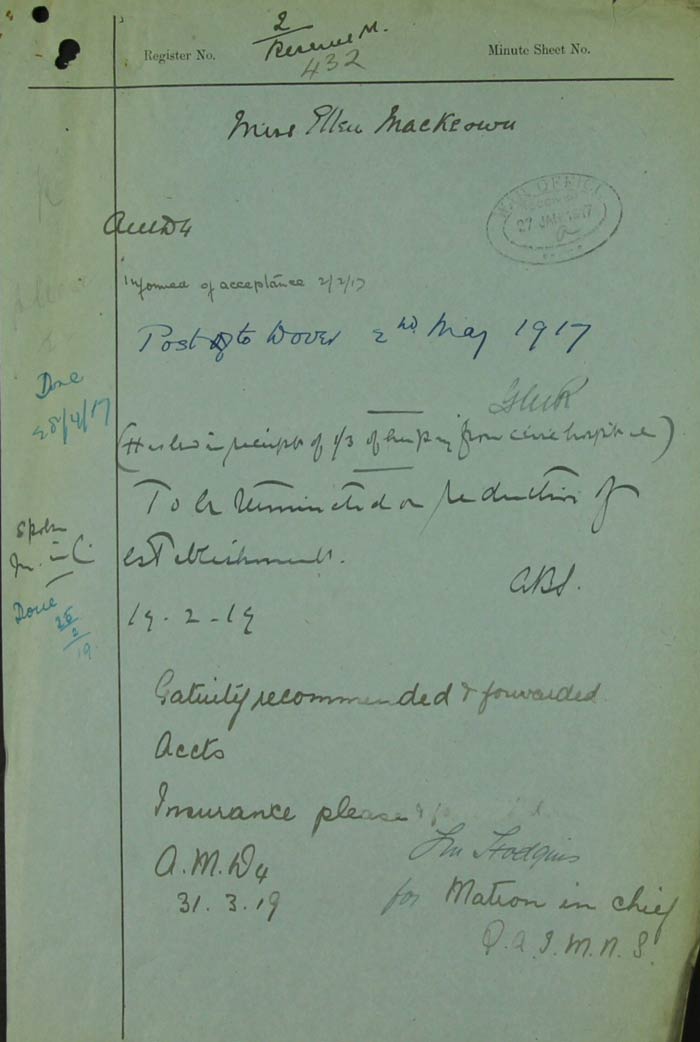 Register No.
2
Reserve M.
432
Minute Sheet No.
Miss Ellen Mackeown
WAR OFFICE
27 JAN 1917
a
AMD4
Informed of acceptance 2/2/17
Post to Dover 2nd May 1917
Done
28/4/17
(He is in receipt of 1/3 of her pay from civic hospital)
To be terminated on reduction of
establishment.
ABS.
Spoken
M. in C.
Done
26
2
19
19.2.19
Gatuity recommended & forwarded
Accts
Insurance please &
A.M.D4
31.3.19
Hodgins
for Matron in chief
Q.A.I.M.N.S.